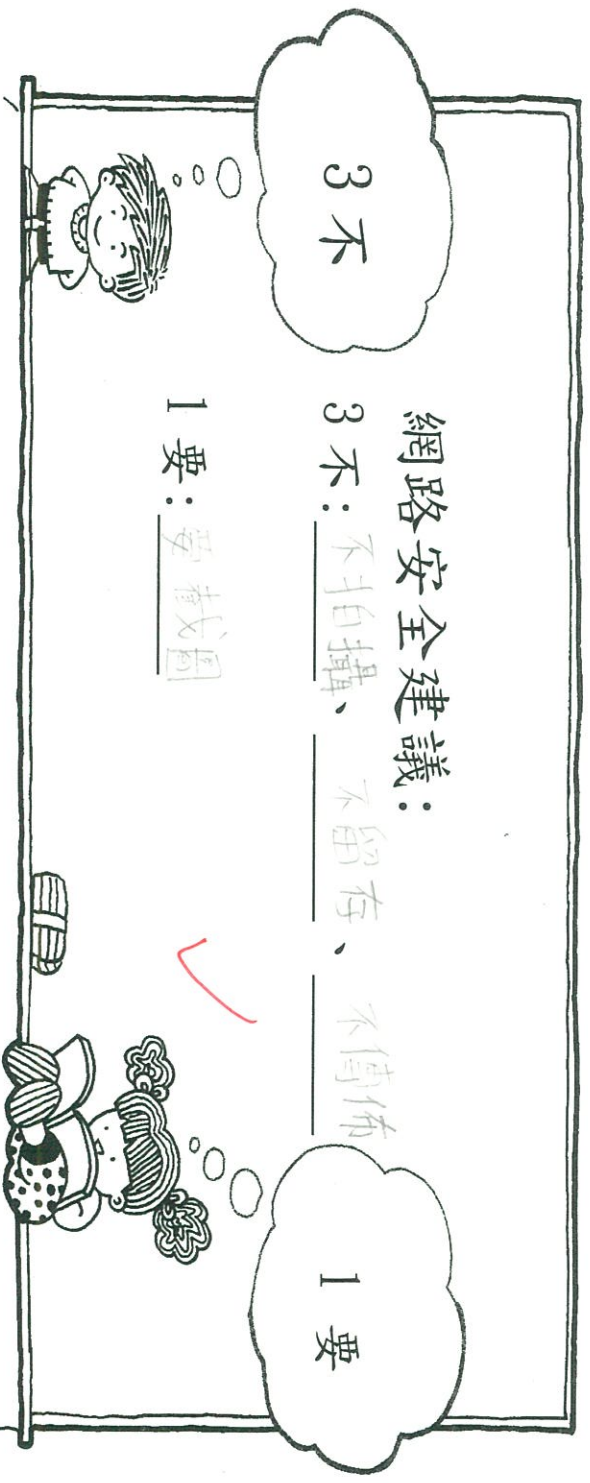 3不
網路安全建議：
3不：不拍攝、不留存、不傳佈
1要：要截圖
1要